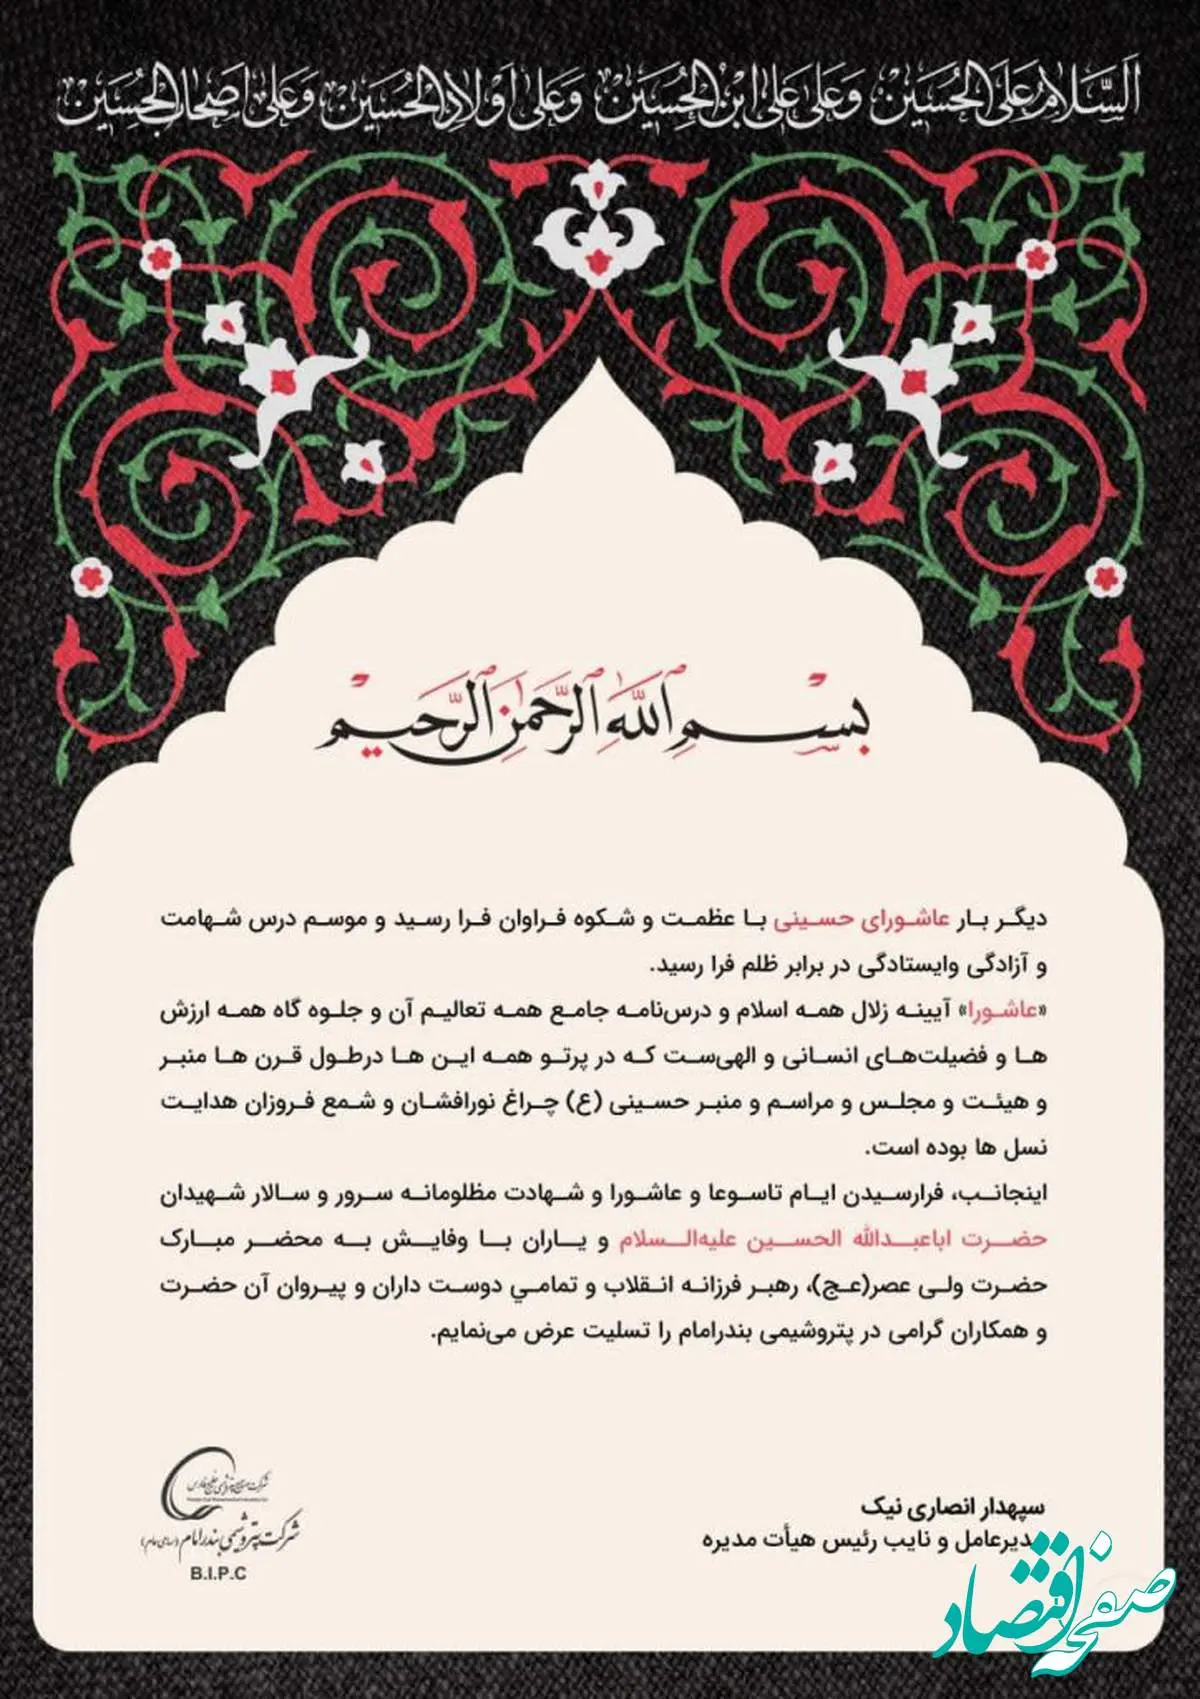 السلام علی الحسین وعلی علی ابن الحسین وعلی اولاد الحسین وعلی اصحاب الحسین
بسم الله الرحمن الرحیم
دیگر بار عاشورای حسینی با عظمت و شکوه فراوان فرا رسید و موسم درس شهامت
و آزادگی وایستادگی در برابر ظلم فرا رسید.
«عاشورا» آیینه زلال همه اسلام و درس‌نامه جامع همه تعالیم آن و جلوه گاه همه ارزش
ها و فضیلت‌های انسانی و الهی‌ست که در پرتو همه این ها درطول قرن ها منبر
و هیئت و مجلس و مراسم و منبر حسینی (ع) چراغ نورافشان و شمع فروزان هدایت
نسل ها بوده است.
اینجانب، فرارسیدن ایام تاسوعا و عاشورا و شهادت مظلومانه سرور و سالار شهیدان
حضرت اباعبدالله الحسین علیه‌السلام و یاران با وفایش به محضر مبارک
حضرت ولی عصر(عج)، رهبر فرزانه انقلاب و تمامي دوست داران و پیروان آن حضرت
و همکاران گرامی در پتروشیمی بندرامام را تسلیت عرض می‌نمایم.
سپهدار انصاری نیک
مدیرعامل و نایب رئیس هیأت مدیره
شرکت صنایع پتروشیمی خلیج فارس
شرکت پتروشیمی بندر امام (سهامی عام)
B.I.P.C
صفحه اقتصاد